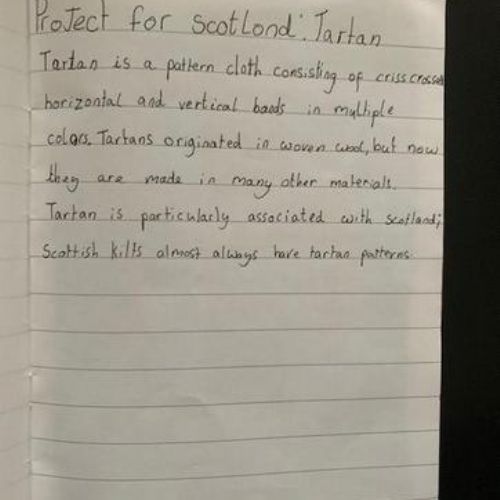 ProJect for Scotlond: Tartan
Tartan is a pattern cloth consisting of criss crossed
horizontal and vertical bands in multiple
colors. Tartans originated in woven wool, but now
they are made in many other materials.
Tartan is particularly associated with scotland;
Scottish kilts almost always have tartan patterns.